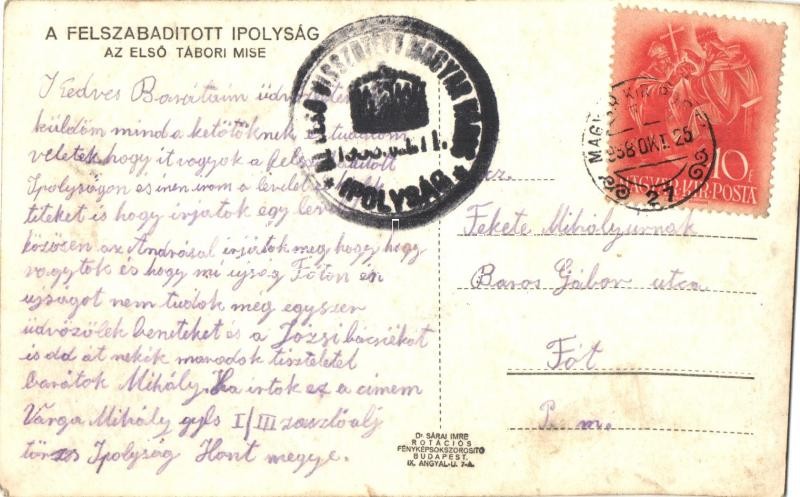 A FELSZABADITOTT IPOLYSÁG
AZ ELSŐ TÁBORI MISE
Kedves Barátaim
küldöm mind a ketötöknek és tudatom
veletek hogy it vagyok a
Ipolyságon és inen irom a levelet
titeket is hogy irjatok egy
közösen az Andrásal irjátok meg hogy hogy
vagytok és hogy mi ujság Fóton én
ujságot nem tudok még egyszer
üdvözölek beneteket és a Józsi bácsiékat
is ad át nekik maradok tisztelettel
barátok Mihály. Ha irtok ez a címem
Varga Mihály gyls I/III zászlóalj
törzs Ipolyság Hont megye.
AZ ELSŐ VISSZATÉRT MAGYAR VÁROS
IPOLYSÁG
MAGYAR KIR. POSTA
938 OKT. 25
27
10 f
MAGYAR·KIR·POSTA
Fekete Mihályurnak
Baros Gábor utca
Fót
P. m.
Dr SÁRAI IMRE
ROTÁCIÓS
FÉNYKÉPSOKSZOROSITÓ
BUDAPEST,
IX. ANGYAL-U. 7-A.